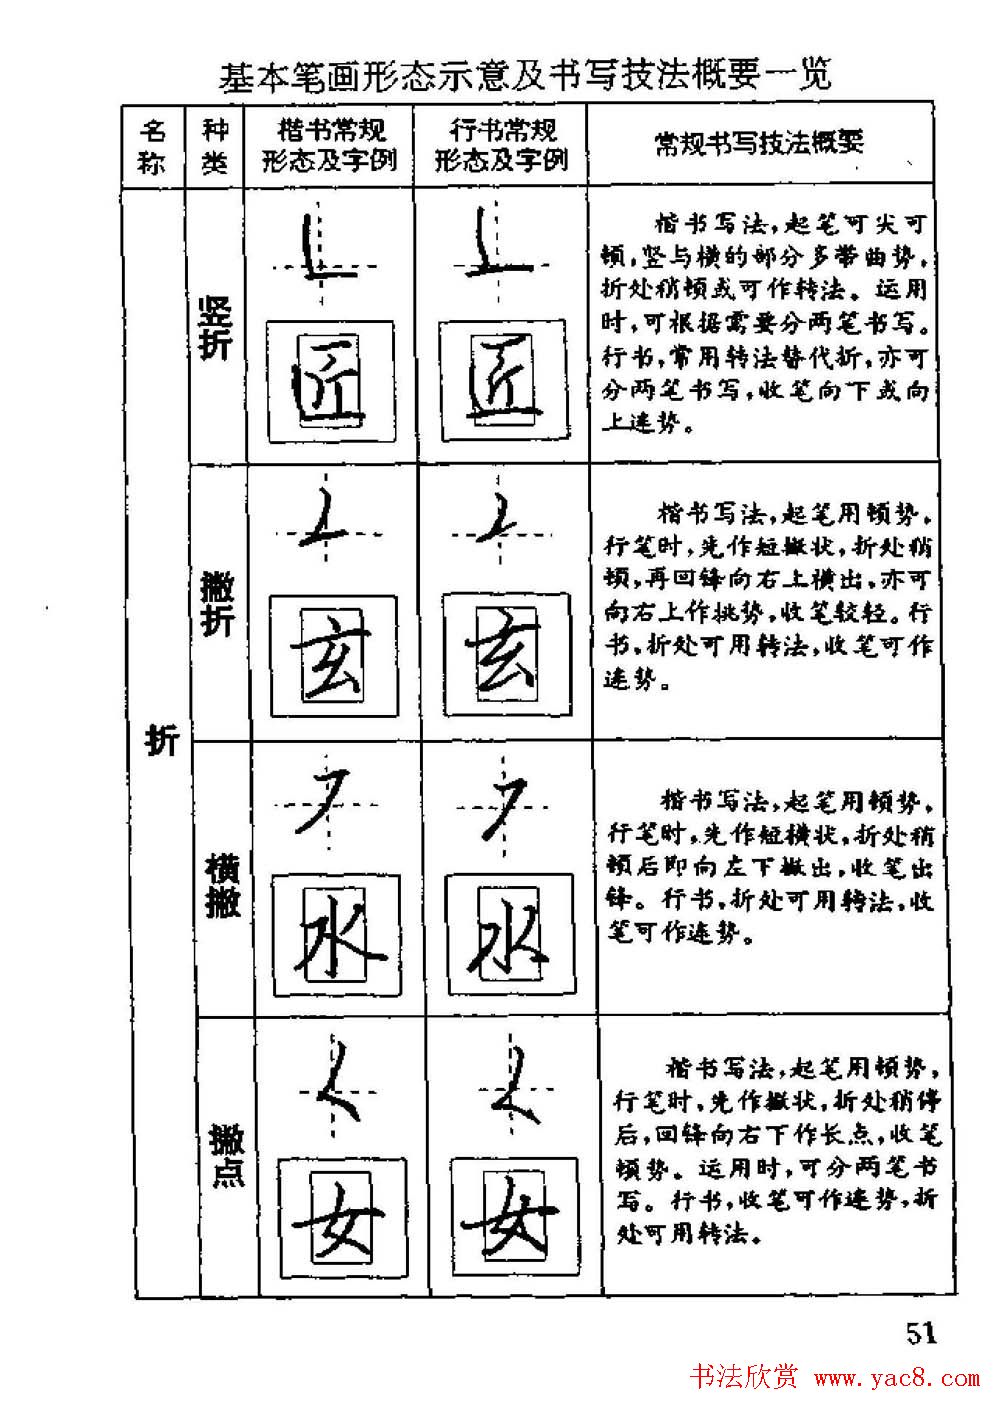 基本笔画形态示意及书写技法概要一览
名称
种类
楷书常规
形态及字例
行书常规
形态及字例
常规书写技法概要
折
竖折
匠
匠
楷书写法,起笔可尖可
顿,竖与横的部分多带曲势,
折处稍顿或可作转法。运用
时,可根据需要分两笔书写。
行书,常用转法替代折,亦可
分两笔书写,收笔向下或向
上连势。
撇折
玄
玄
楷书写法,起笔用顿势,
行笔时,先作短撇状,折处稍
顿,再回锋向右上横出,亦可
向右上作挑势,收笔较轻。行
书,折处可用转法,收笔可作
连势。
横撇
水
水
楷书写法,起笔用顿势,
行笔时,先作短横状,折处稍
顿后即向左下撇出,收笔出
锋。行书,折处可用转法,收
笔可作连势。
撇点
女
女
楷书写法,起笔用顿势,
行笔时,先作撇状,折处稍停
后,回锋向右下作长点,收笔
顿势。运用时,可分两笔书
写。行书,收笔可作连势,折
处可用转法。
51
书法欣赏 www.yac8.com